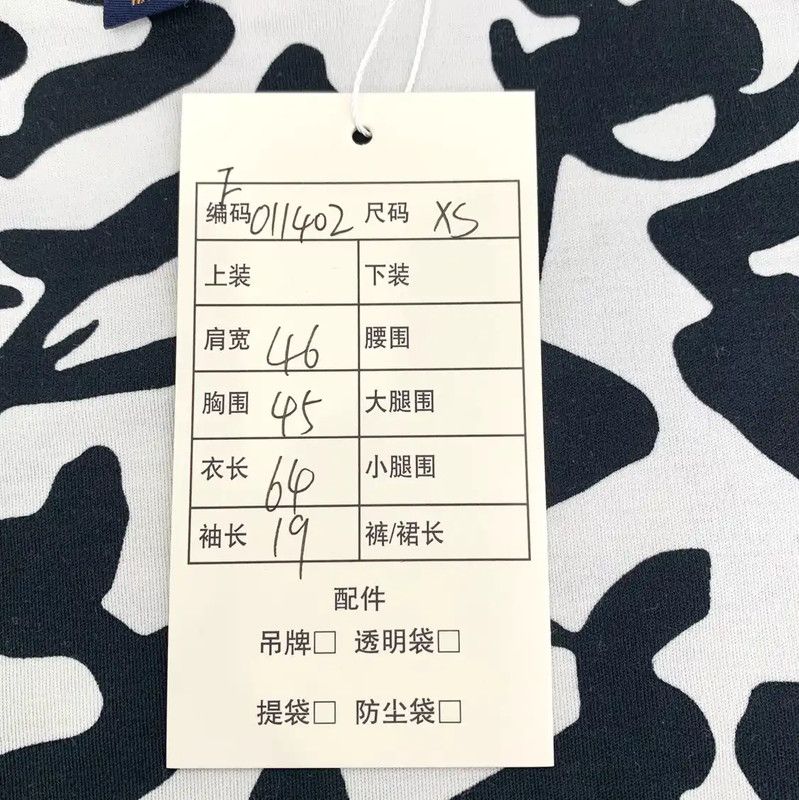 F
编码 011402 尺码 XS
上装 下装
肩宽 46 腰围
胸围 45 大腿围
衣长 64 小腿围
袖长 19 裤/裙长
配件
吊牌□ 透明袋□
提袋□ 防尘袋□